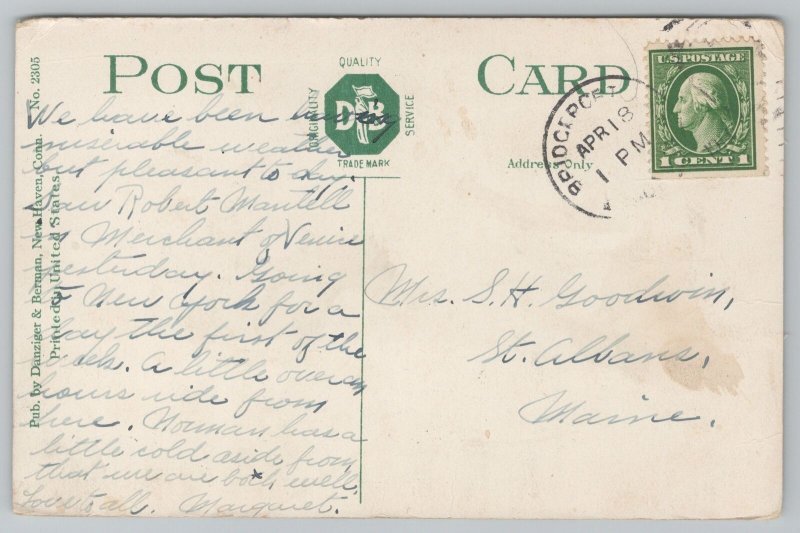 POST CARD
QUALITY
ORIGINALITY
D B
SERVICE
TRADE MARK
Address Only
U.S. POSTAGE
1 CENT 1
BRIDGEPORT
APR 18
1 PM
Pub. by Danziger & Berman, New Haven, Conn. No. 2305
Printed in United States.
We have been having
miserable weather
but pleasant to day.
Saw Robert Mantell
in Merchant of Venice
yesterday. Going
to New York for a
day the first of the
week. A little over an
hours ride from
here. Norman has a
little cold aside from
that we are both well.
Love to all. Margaret.
Mrs. S. H. Goodwin,
St. Albans,
Maine.